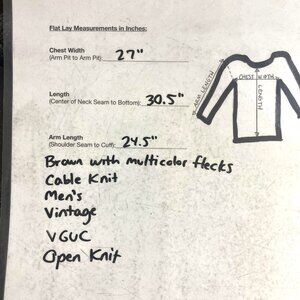 Flat Lay Measurements in Inches:
Chest Width
(Arm Pit to Arm Pit): 27"
Length
(Center of Neck Seam to Bottom): 30.5"
Arm Length
(Shoulder Seam to Cuff): 24.5"
Brown with multicolor flecks
Cable Knit
Men's
Vintage
VGUC
Open Knit
ARM LENGTH
CHEST WIDTH
LENGTH